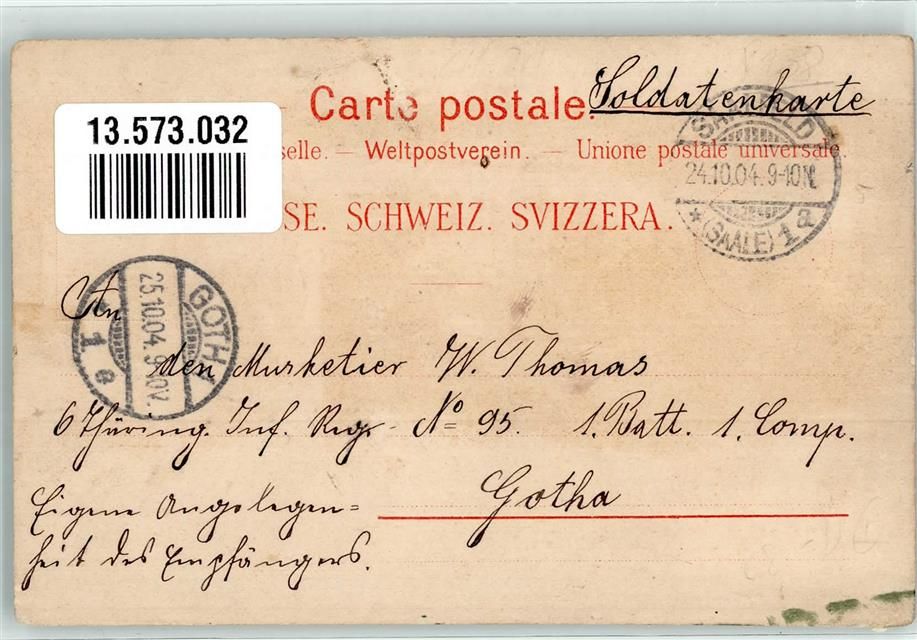 Carte postale. Soldatenkarte
13.573.032
selle. — Weltpostverein. — Unione postale universale.
SE. SCHWEIZ. SVIZZERA.
SAALFELD
24.10.04. 9-10 V.
* (SAALE) 1a
GOTHA
25.10.04. 9-10 V.
* 1 e
An
den Musketier W. Thomas
6 Thüring. Inf. Reg. No 95. 1. Batt. 1. Comp.
Gotha
Eigene Angelegen=
heit des Empfängers.